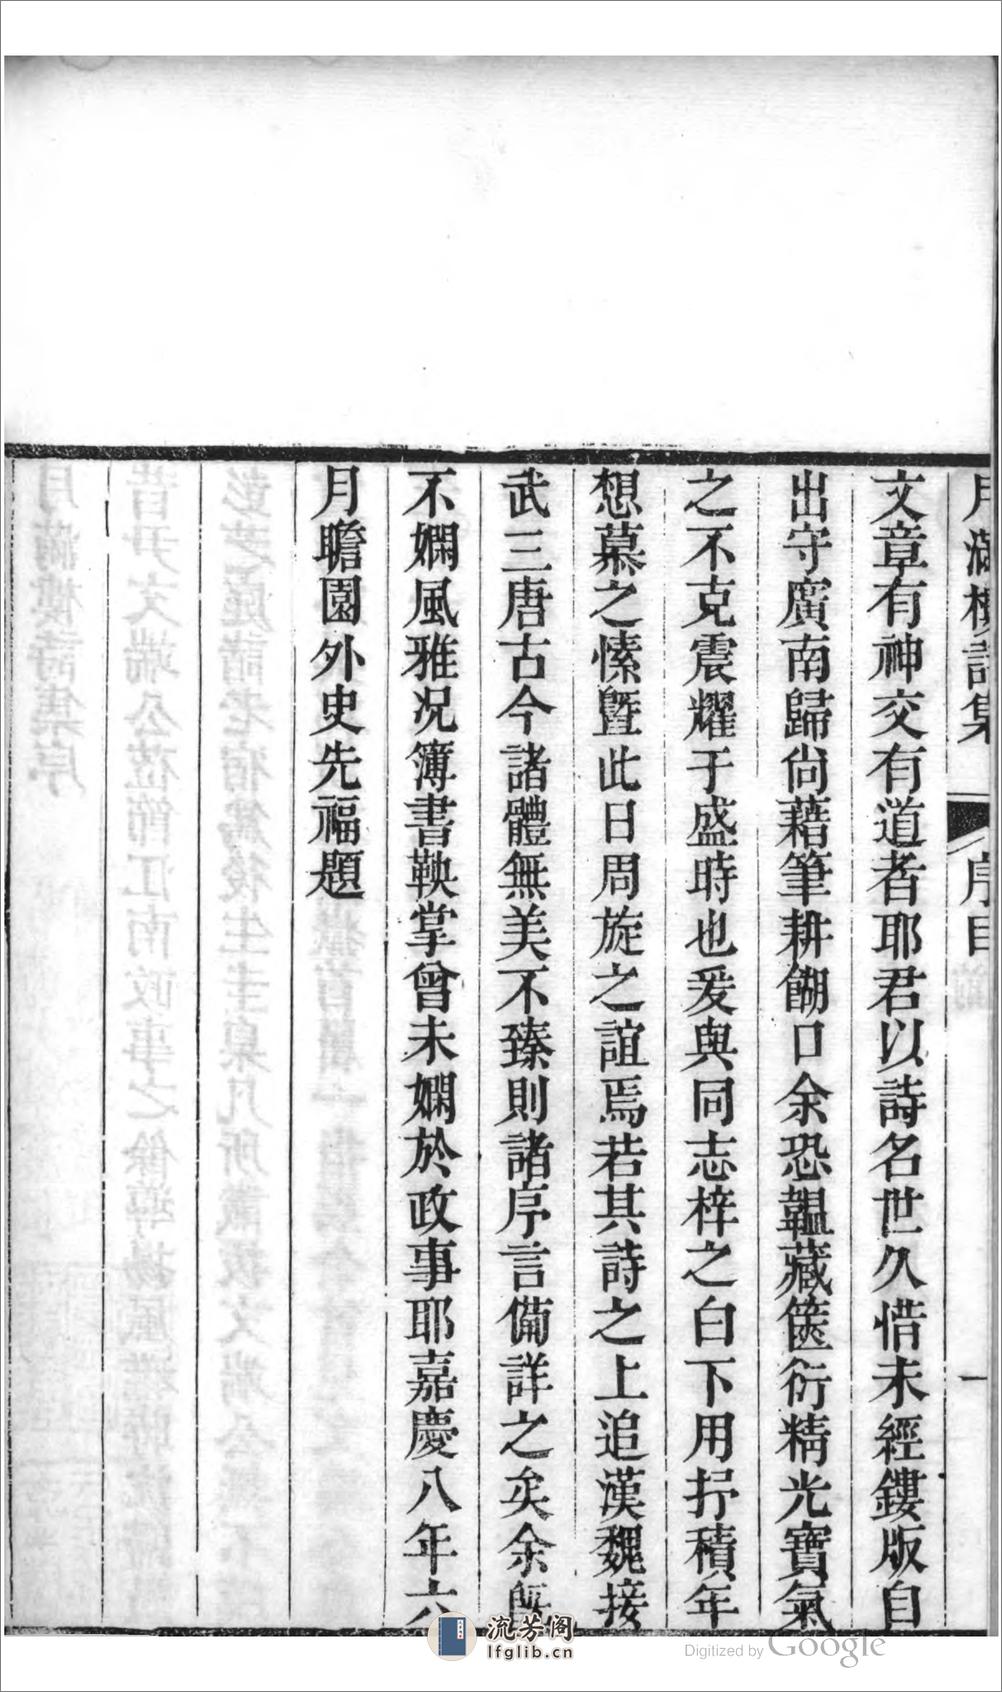 月滿樓詩集 序目 一
文章有神交有道者耶君以詩名世久惜未經鏤版自
出守廣南歸尙藉筆耕餬口余恐韞藏篋衍精光寶氣
之不克震耀于盛時也爰與同志梓之白下用抒積年
想慕之愫曁此日周旋之誼焉若其詩之上追漢魏接
武三唐古今諸體無美不臻則諸序言備詳之矣余旣
不嫻風雅况簿書鞅掌曾未嫻於政事耶嘉慶八年六
月瞻園外史先福題
流芳阁
lfglib.cn
Digitized by Google